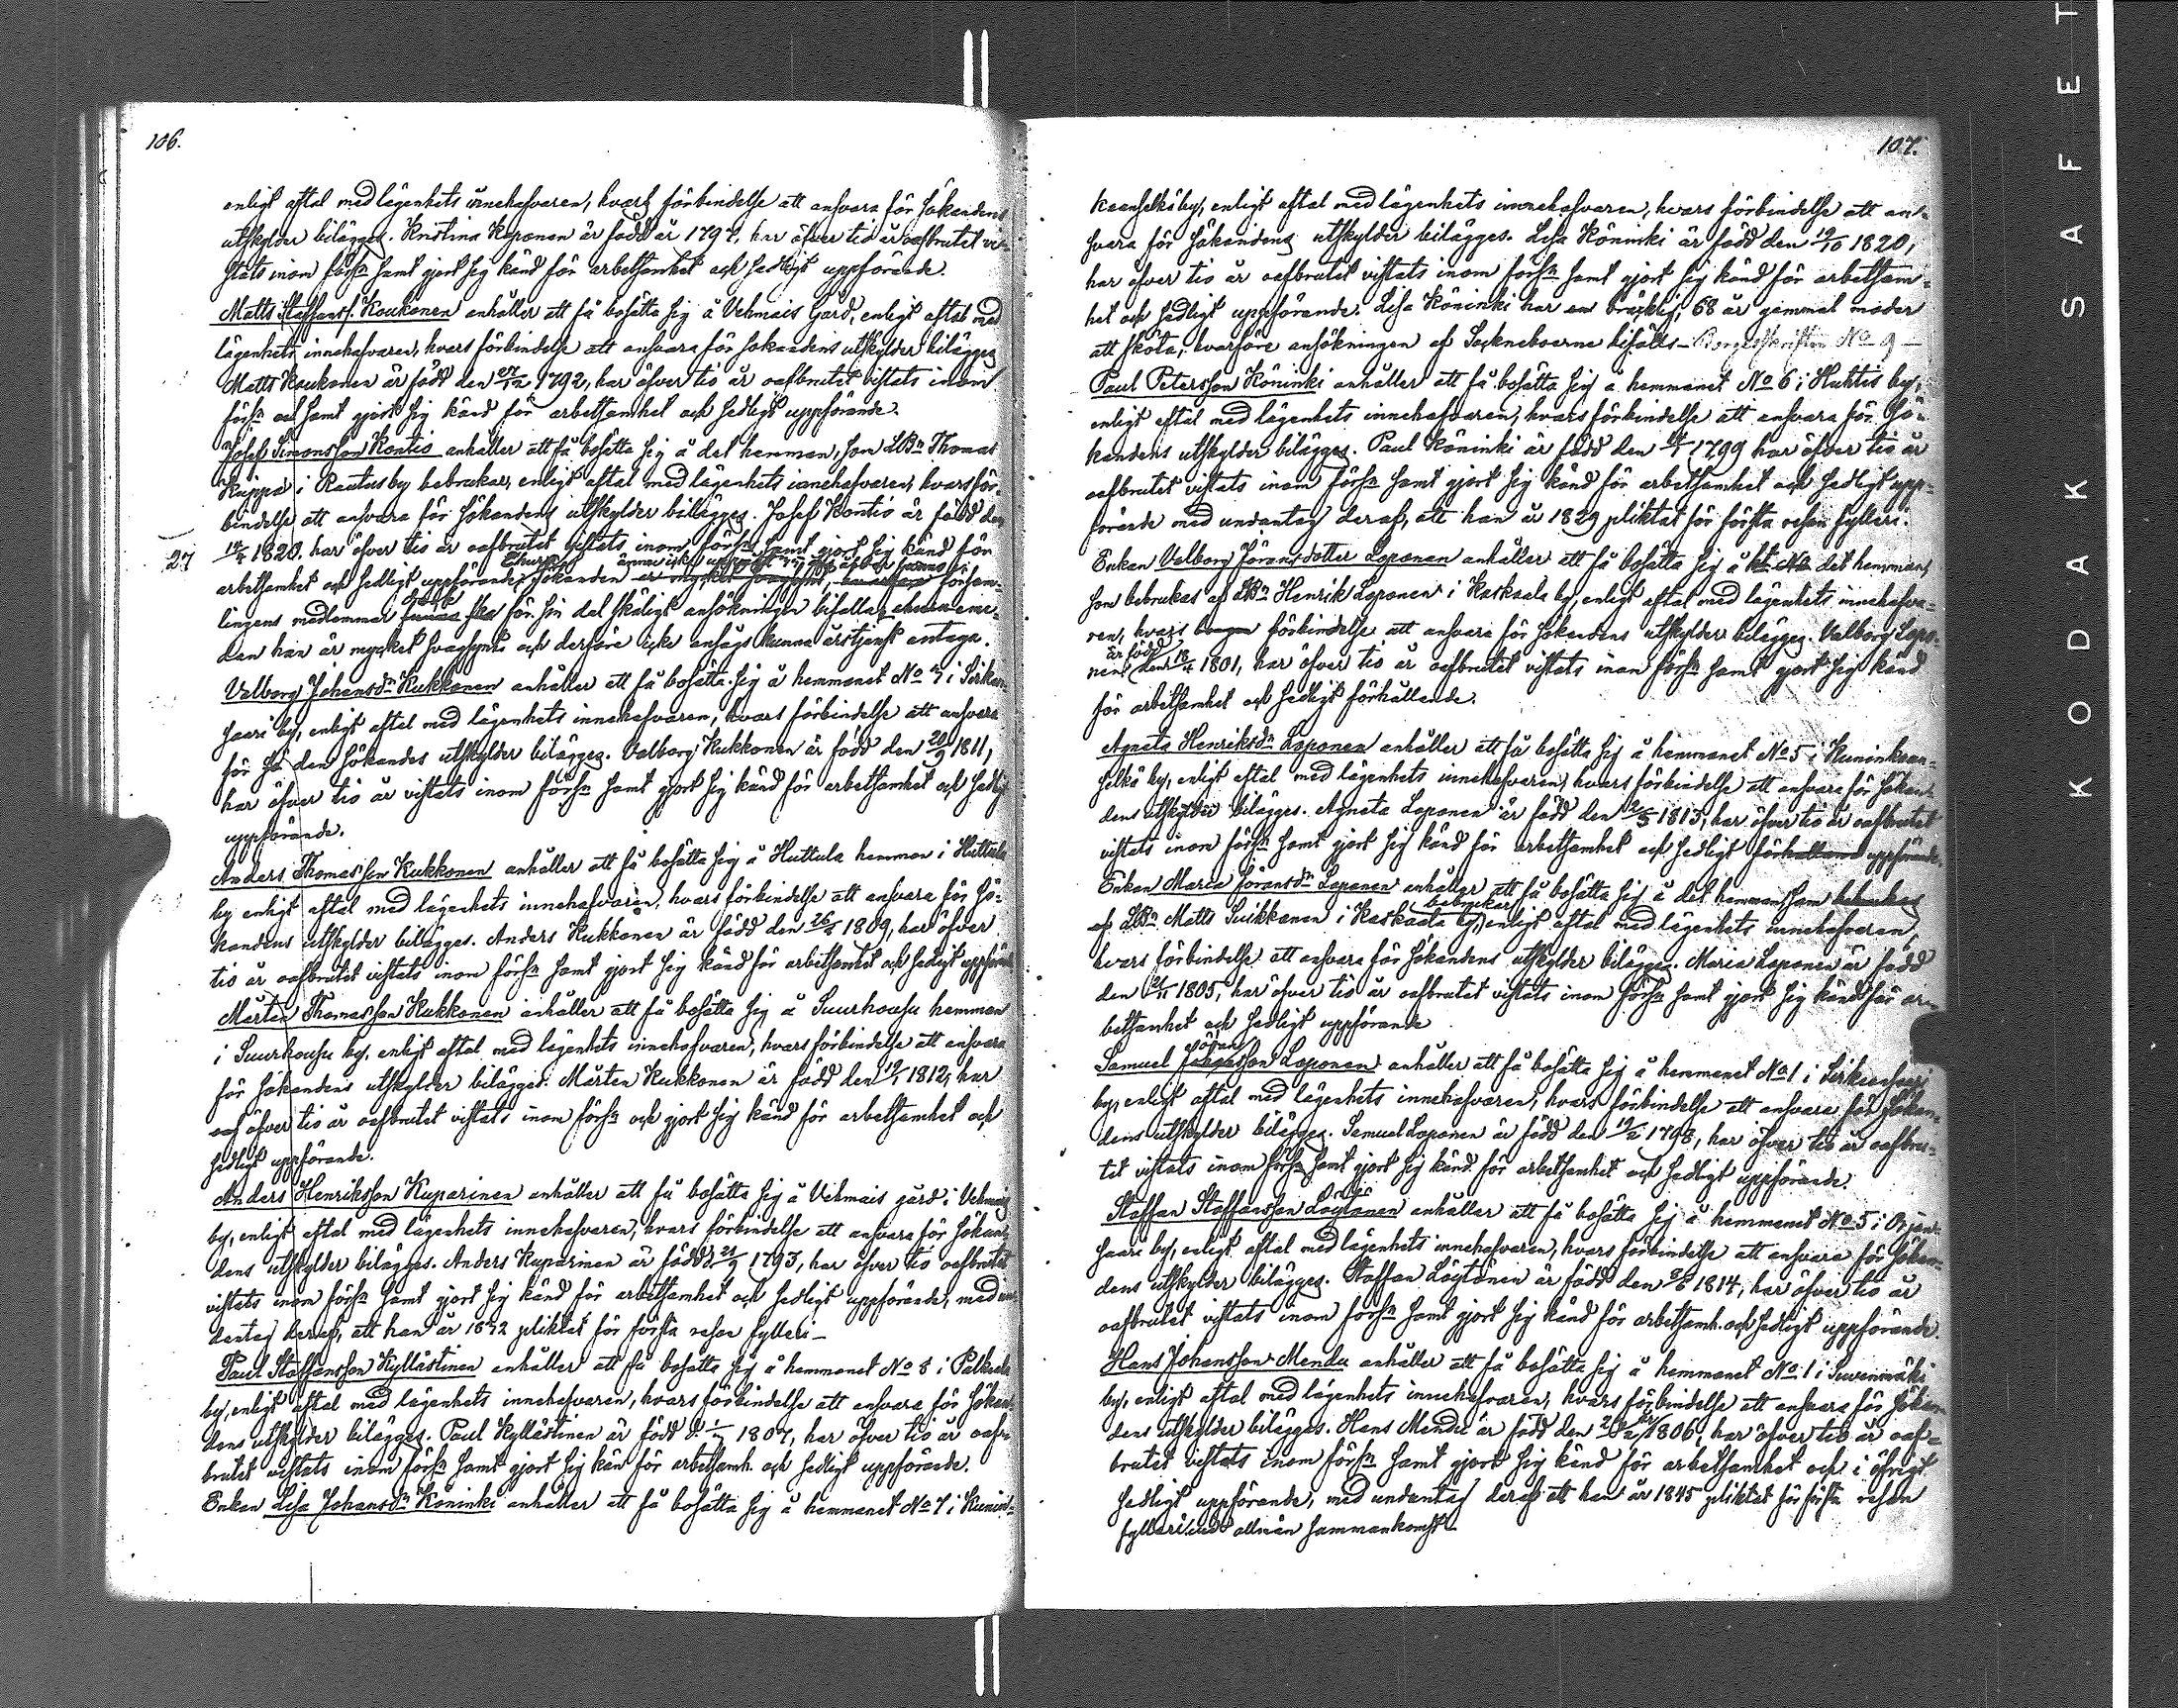 106.
enligt aftal med lägenhets innehafvaren, hvars förbindelse att ansvara för sökandens
utskylder bilägges. Kristina Koponen är född år 1797, har öfver tio år oafbrutet vi-
stats inom förs:n samt gjort sig känd för arbetsamhet och sedligt uppförande.
Matts Staffanss. Koukonen anhåller att få bosätta sig å Vehmais Gård, enligt aftal med
lägenhets innehafvaren, hvars förbindelse att ansvara för sökandens utskylder bilägges
Matts Koukonen är född den 27/12 1792, har öfver tio år oafbrutet vistats inom
förs:n och samt gjort sig känd för arbetsamhet och sedligt uppförande.
Josef Simonsson Kontio anhåller att få bosätta sig å det hemman, som LB:n Thomas
i Rautus by bebrukar, enligt aftal med lägenhets innehafvaren, hvars för-
bindelse att ansvara för sökandens utskylder bilägges. Josef Kontio är född den
27 1820. har öfver tio år oafbrutet vistats inom förs:n samt gjort sig känd för
Ehuru ännu icke uppnått
arbetsamhet och sedligt uppförande, sökanden är mycket svagsynt, hvarföre försam-
lingens medlemmar för sin del skäligt ansökningen bifalla, eme-
dan han är mycket svagsynt och derföre icke anses kunna årstjenst antaga.
Valborg Johansd:r Kukkonen anhåller att få bosätta sig å hemmanet No 7 i Sirkian-
saari by, enligt aftal med lägenhets innehafvaren, hvars förbindelse att ansvara
för sö den sökandes utskylder bilägges. Valborg Kukkonen är född den 20/9 1811,
har öfver tio år vistats inom förs:n samt gjort sig känd för arbetsamhet och sedligt
uppförande.
Anders Thomasson Kukkonen anhåller att få bosätta sig å Huttula hemman i Huttula
by enligt aftal med lägenhets innehafvaren, hvars förbindelse att ansvara för sö-
kandens utskylder bilägges. Anders Kukkonen är född den 26/2 1809, har öfver
tio år oafbrutet vistats inom förs:n samt gjort sig känd för arbetsamhet och sedligt uppförande
Mårten Thomasson Kukkonen anhåller att få bosätta sig å Suurhousu hemman
i Suurhousu by. enligt aftal med lägenhets innehafvaren, hvars förbindelse att ansvara
för sökandens utskylder bilägges. Mårten Kukkonen är född den 1812, har
och öfver tio år oafbrutet vistats inom förs:n och gjort sig känd för arbetsamhet och
sedligt uppförande.
Anders Henriksson Kuparinen anhåller att få bosätta sig å Vehmais gård i Vehmais
by, enligt aftal med lägenhets innehafvaren, hvars förbindelse att ansvara för sökan-
dens utskylder bilägges. Anders Kuparinen är född d. 1793, har öfver tio oafbrutet
vistats inom förs:n samt gjort sig känd för arbetsamhet och sedligt uppförande, med un-
dantag deraf, att han år 1842 pliktat för första resan fylleri—
Paul Staffansson Kyllästinen anhåller att få bosätta sig å hemmanet No 8 i Palkeala
by, enligt aftal med lägenhets innehafvaren, hvars förbindelse att ansvara för sökan-
dens utskylder bilägges. Paul Kyllästinen är född d. 1807, har öfver tio år oaf-
brutet vistats inom förs:n samt gjort sig kän för arbetsamh. och sedligt uppförande.
Enkan Lisa Johansd:r Köninki anhåller att få bosätta sig å hemmanet No 7 i Kunin-
107.
kaanselkä by, enligt aftal med lägenhets innehafvaren, hvars förbindelse att an-
svara för sökandens utskylder bilägges. Lisa Köninki är född den 19/10 1820,
har öfver tio år oafbrutet vistats inom förs:n samt gjort sig känd för arbetsam-
het och sedligt uppförande. Lisa Köninki har en bräcklig, 68 år gammal moder
att sköta, hvarföre ansökningen af Sockneboerne bifalls— Borgesskriften No 9—
Paul Petersson Köninki anhåller att få bosätta sig å hemmanet No 6 i Huhtis by,
enligt aftal med lägenhets innehafvaren, hvars förbindelse att ansvara för sö-
kandens utskylder bilägges. Paul Köninki är född den 1799 har öfver tio år
oafbrutet vistats inom förs:n samt gjort sig känd för arbetsamhet och sedligt upp-
förande med undantag deraf, att han år 1829 pliktat för första resan fylleri.
Enkan Valborg Jöransdotter Loponen anhåller att få bosätta sig å ht No det hemman,
som bebrukas af LB:n Henrik Loponen i Kaskaala by, enligt aftal med lägenhets innehafva-
ren, hvars förbindelse att ansvara för sökandens utskylder bilägges. Valborg Lopo-
är född
nen den 1801, har öfver tio år oafbrutet vistats inom förs:n samt gjort sig känd
för arbetsamhet och sedligt förhållande.
Agneta Henriksd:r Loponen anhåller att få bosätta sig å hemmanet No 5 i Kuninkaan-
selkä by, enligt aftal med lägenhets innehafvaren, hvars förbindelse att ansvara för sökan-
dens utskylder bilägges. Agneta Loponen är född den 1813, har öfver tio år oafbrutet
vistats inom förs:n samt gjort sig känd för arbetsamhet och sedligt förhålland uppförande.
Enkan Maria Jöransd:r Loponen anhåller att få bosätta sig å det hemman, som bebrukas
bebrukar
af LB:n Matts Suikkanen i Kaskaala by, enligt aftal med lägenhets innehafvaren,
hvars förbindelse att ansvara för sökandens utskylder bilägges. Maria Loponen är född
den 1805, har öfver tio år oafbrutet vistats inom förs:n samt gjort sig känd för ar-
betsamhet och sedligt uppförande
Samuel Loponen anhåller att få bosätta sig å hemmanet No 1 i Sirkiansaari
by, enligt aftal med lägenhets innehafvaren, hvars förbindelse att ansvara för sökan-
dens utskylder bilägges. Samuel Loponen är född den 19/2 1798, har öfver tio år oafbru-
tet vistats inom förs:n samt gjort sig känd för arbetsamhet och sedligt uppförande.
Staffan Staffansson Löytönen anhåller att få bosätta sig å hemmanet No 5 i Orjan-
saari by, enligt aftal med lägenhets innehafvaren, hvars förbindelse att ansvara för sökan-
dens utskylder bilägges. Staffan Löytönen är född den 1814, har öfver tio år
oafbrutet vistats inom förs:n samt gjort sig känd för arbetsamh. och sedligt uppförande.
Hans Johansson Mendu anhåller att få bosätta sig å hemmanet No 1 i Suvenmäki
by, enligt aftal med lägenhets innehafvaren, hvars förbindelse att ansvara för sökan-
dens utskylder bilägges. Hans Mendu är född den 1806, har öfver tio år oaf-
brutet vistats inom förs:n samt gjort sig känd för arbetsamhet och i öfrigt
sedligt uppförande, med undantag deraf att han år 1845 pliktat för första resan
fylleri vid allmän sammankomst—
KODAK SAFET